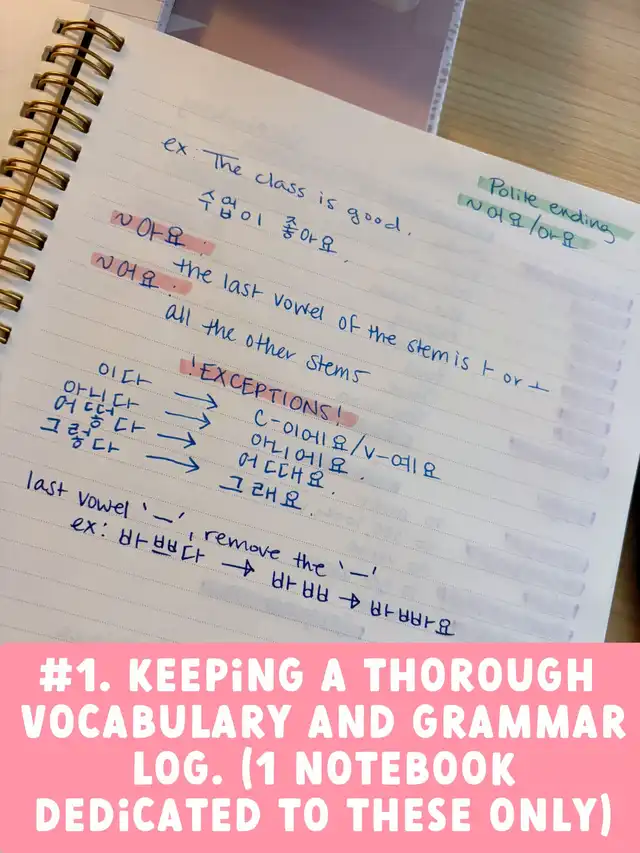 Polite ending
~어요/아요
ex: The class is good.
수업이 좋아요.
~아요:
the last vowel of the stem is ㅏ or ㅗ
~어요:
all the other stems
!EXCEPTIONS!
이다 → C-이에요/V-예요
아니다 → 아니에요.
어떻다 → 어때요.
그렇다 → 그래요.
last vowel 'ㅡ', remove the 'ㅡ'
ex: 바쁘다 → 바ㅃ → 바빠요
#1. KEEPiNG A THOROUGH
VOCABULARY AND GRAMMAR
LOG. (1 NOTEBOOK
DEDiCATED TO THESE ONLY)